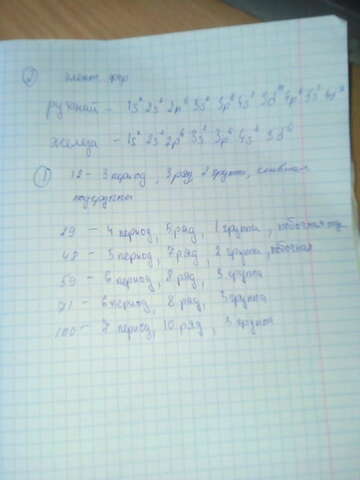 ② элект. фор
рутений – 1s² 2s² 2p⁶ 3s² 3p⁶ 4s² 3d¹⁰ 4p⁶ 5s² 4d⁶
железа – 1s² 2s² 2p⁶ 3s² 3p⁶ 4s² 3d⁶
① 12 – 3 период, 3 ряд, 2 группа, главная
подгруппа
29 – 4 период, 5 ряд, 1 группа, побочная под
48 – 5 период, 7 ряд, 2 группа, побочная
59 – 6 период, 8 ряд, 3 группа
71 – 6 период, 8 ряд, 3 группа
100 – 7 период, 10 ряд, 3 группа